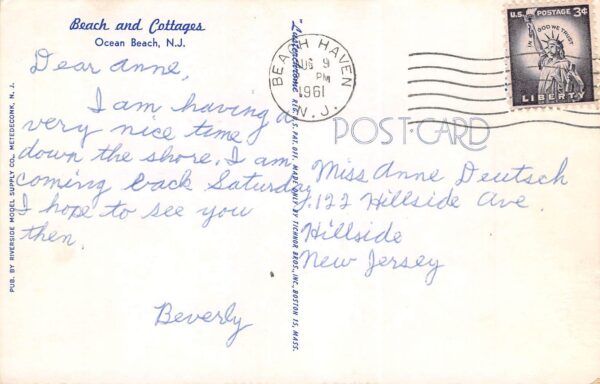 Beach and Cottages
Ocean Beach, N.J.
Dear Anne,
I am having a
very nice time
down the shore. I am
coming back Saturday
I hope to see you
then.
Beverly
PUB. BY RIVERSIDE MODEL SUPPLY CO., METEDECONK, N. J.
"Lusterchrome" REG. U. S. PAT. OFF. MADE ONLY BY TICHNOR BROS., INC., BOSTON 15, MASS.
BEACH HAVEN
9
PM
1961
N. J.
U.S. POSTAGE 3¢
IN GOD WE TRUST
LIBERTY
POST CARD
Miss Anne Deutsch
122 Hillside Ave.
Hillside
New Jersey